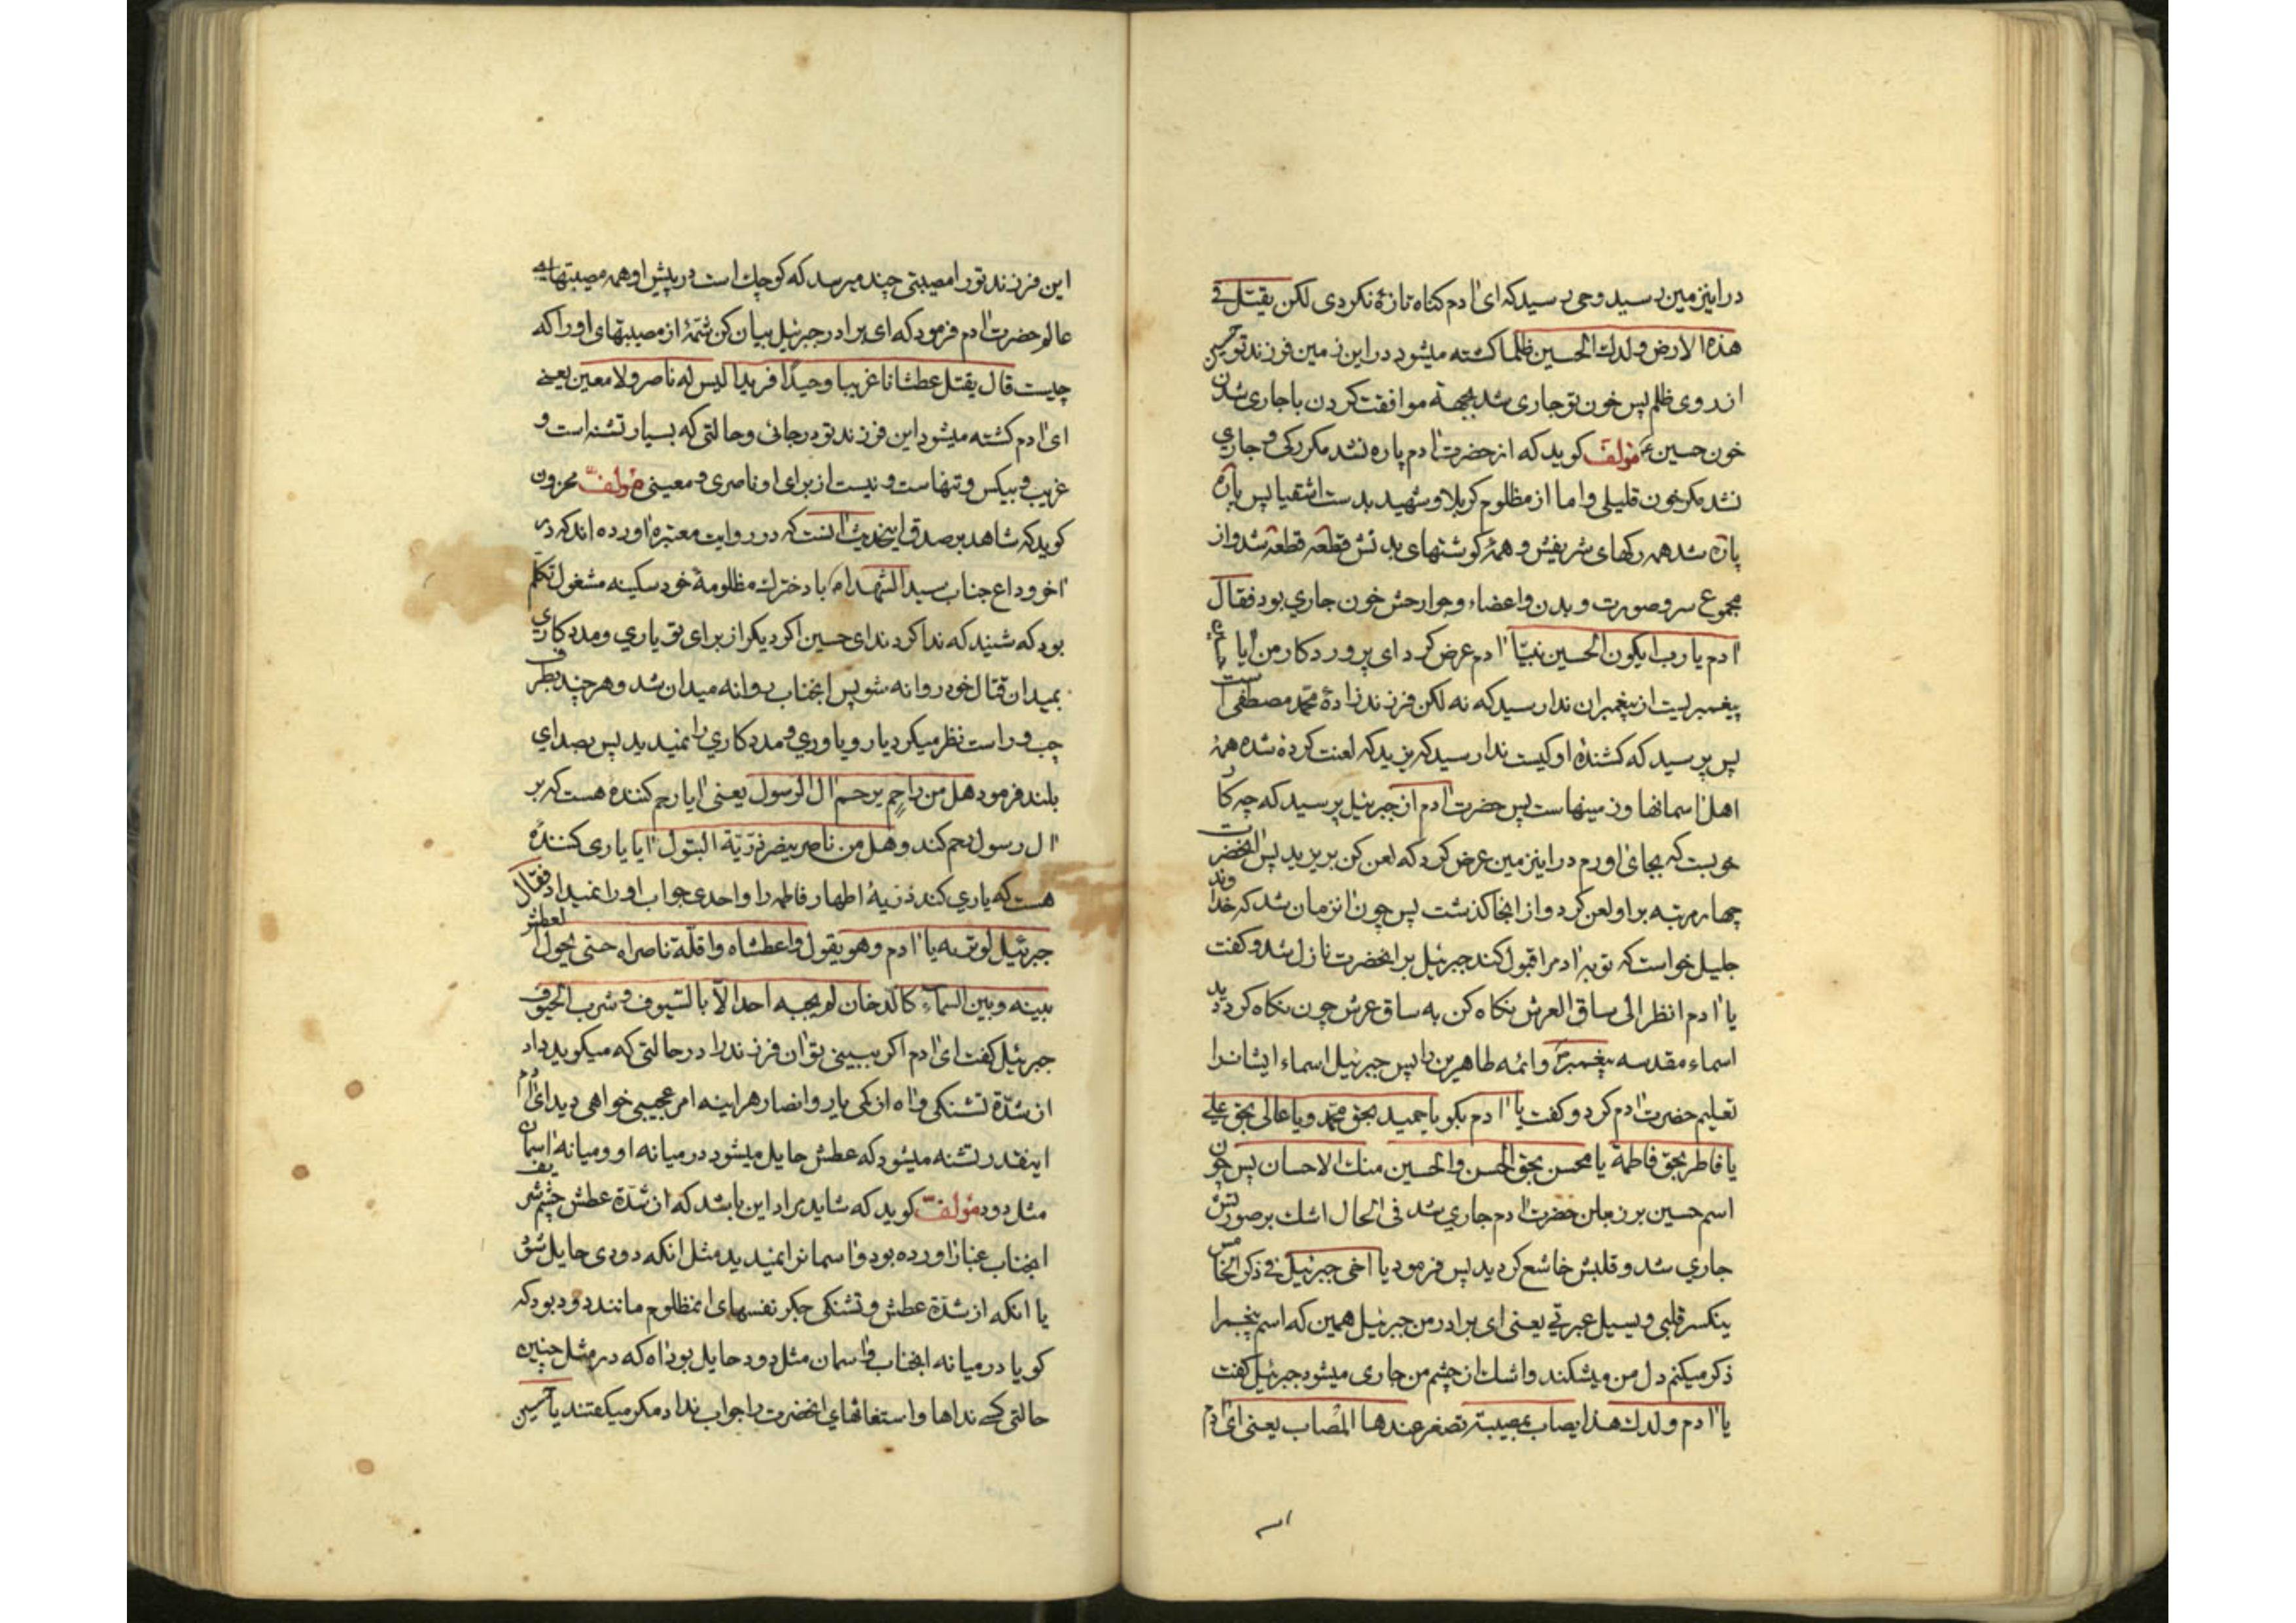 در اینزمین رسید وحی رسید که ای ادم کناه تازهٔ نکردی لکن یقتل فی
هذه الارض ولدك الحسین ظلما کشته میشود در این زمین فرزند تو حسین
از روی ظلم پس خون تو جاری شد بجهة موافقت کردن با جاری شدن
خون حسین ع مؤلف کوید که از حضرت ادم پاره نشد مکر رکی و جاری
نشد مکر خون قلیلی و اما از مظلوم کربلا و شهید بدست اشقیا پس پاره
پاره شد همه رکهای شریفش و همهٔ کوشتهای بدنش قطعه قطعه شد و از
مجموع سر و صورت و بدن و اعضاء و جوارحش خون جاری بود فقال
ادم یا رب ایکون الحسین نبیّا ادم عرض کرد ای پروردکار من ایا
پیغمبریست از پیغمبران ندا رسید که نه لکن فرزند زادهٔ محمد مصطفی است
پس پرسید که کشندهٔ او کیست ندا رسید که یزید که لعنت کرده شده همهٔ
اهل اسمانها و زمینهاست پس حضرت ادم از جبرئیل پرسید که چه کار
خوبست که بجای اورم در اینزمین عرض کرد که لعن کن بر یزید پس انحضرت
چهار مرتبه بر او لعن کرد و از انجا کذشت پس چون انزمان شد که خداوند
جلیل خواست که توبهٔ ادم را قبول کند جبرئیل بر انحضرت نازل شد و کفت
یا ادم انظر الی ساق العرش نکاه کن به ساق عرش چون نکاه کرد دید
اسماء مقدسه پیغمبر و ائمه طاهرین را پس جبرئیل اسماء ایشانرا
تعلیم حضرت ادم کرد و کفت یا ادم بکو یا حمید بحق محمد و یا عالی بحق علی
یا فاطر بحق فاطمة یا محسن بحق الحسن والحسین منك الاحسان پس چون
اسم حسین بر زبان حضرت ادم جاری شد فی الحال اشك بر صورتش
جاری شد و قلبش خاشع کردید پس فرمود یا اخی جبرئیل فی ذکر الخامس
ینکسر قلبی و یسیل عبرتی یعنی ای برادر من جبرئیل همین که اسم پنجمرا
ذکر میکنم دل من میشکند و اشك از چشم من جاری میشود جبرئیل کفت
یا ادم ولدك هذا یصاب بمصیبة تصغر عندها المصاب یعنی ای ادم
این فرزند تو را مصیبتی چند میرسد که کوچك است در پیش او همه مصیبتهای
عالم حضرت ادم فرمود که ای برادر جبرئیل بیان کن شمّهٔ از مصیبتهای او را که
چیست قال یقتل عطشانا غریبا وحیدًا فریدا لیس له ناصر ولا معین یعنی
ای ادم کشته میشود این فرزند تو در جائی و حالتی که بسیار تشنه است و
غریب و بیکس و تنهاست و نیست از برای او ناصری و معینی مؤلف محزون
کوید که شاهد بر صدق اینحدیث انست که در روایت معتبره اورده اند که در
اخر وداع جناب سید الشهداء با دخترك مظلومهٔ خود سکینه مشغول تکلم
بود که شنید که ندا کرد ندای حسین اکر دیکر از برای تو یاری و مددکاری
بمیدان قتال خود روانه شو پس انجناب روانه میدان شد و هر چند بطرف
چپ و راست نظر میکرد یار و یاوری و مددکاری را نمیدید پس بصدای
بلند فرمود هل من راحم یرحم ال الرسول یعنی ایا رحم کنندهٔ هست که بر
ال رسول رحم کند و هل من ناصر ینصر ذرّیّة البتول ایا یاری کنندهٔ
هست که یاری کند ذریهٔ اطهار فاطمه را و احدی جواب او را نمیداد فقال
جبرئیل لو تریه یا ادم و هو یقول واعطشاه واقلة ناصراه حتی یحول العطش
بینه و بین السماء کالدخان لم یجبه احد الا بالسیوف و شرب الحتوف
جبرئیل کفت ای ادم اکر ببینی تو ان فرزند را در حالتی که میکوید داد
از شدّة تشنکی و اه از کمی یار و انصار هر اینه امر عجیبی خواهی دید ای ادم
اینقدر تشنه میشود که عطش حایل میشود در میانه او و میانه اسمان
مثل دود مؤلف کوید که شاید مراد این باشد که از شدّة عطش چشم شریف
انجناب غبار اورده بود و اسمانرا نمیدید مثل انکه دودی حایل شود
یا انکه از شدّة عطش و تشنکی جکر نفسهای انمظلوم مانند دود بود که
کویا در میانه انجناب و اسمان مثل دود حایل بود اه که در مثل چنین
حالتی کسی نداها و استغاثهای انحضرت را جواب نداد مکر میکفتند یا حسین